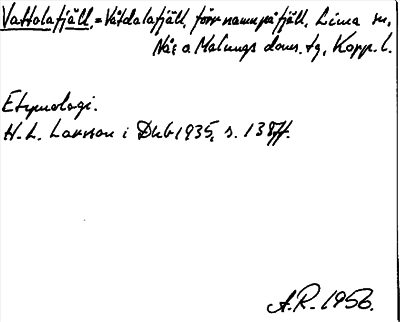 Vattolafjäll, = Våtdalafjäll, förr namn på fjäll, Lima sn,
Nås o Malungs doms. tg, Kopp. l.
Etymologi.
H. L. Larsson i DhbT 1935, s. 138ff.
A.R. 1956.